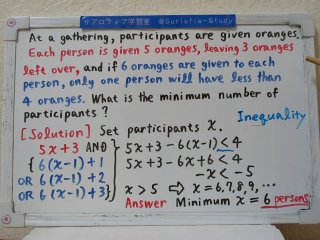 サアロフィア学習室 @Surlofia-Study
At a gathering, participants are given oranges.
Each person is given 5 oranges, leaving 3 oranges
left over, and if 6 oranges are given to each
person, only one person will have less than
4 oranges. What is the minimum number of
participants?
Inequality
[Solution] Set participants x.
5x+3 AND
{ 6(x-1)+1
OR 6(x-1)+2
OR 6(x-1)+3 }
5x+3-6(x-1)<4
5x+3-6x+6<4
-x<-5
x>5 ⇨ x=6,7,8,9,...
Answer Minimum x=6 persons